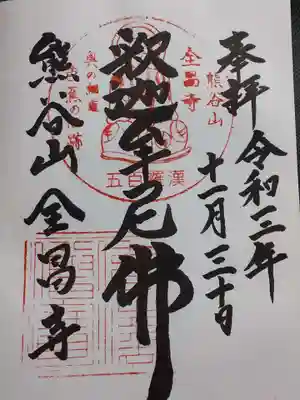 奉拝
令和三年
十一月三十日
釈迦牟尼佛
熊谷山全昌寺
熊谷山
全昌寺
奥の細道
芭蕉の跡
五百羅漢